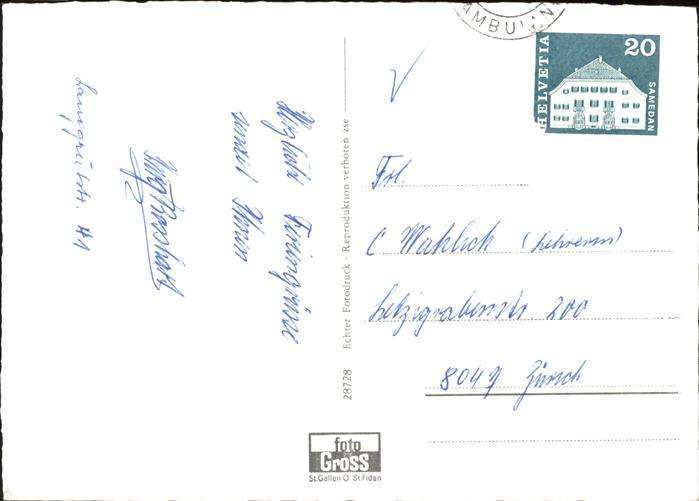 Herzliche Feriengrüsse
Langgrütstr. 81
28728 Echter Fotodruck · Reproduktion verboten zse
foto
Gross
St.Gallen O St.Fiden
AMBULAN
HELVETIA
20
SAMEDAN
Frl.
C Wahlich (Lehrerin)
Letzigrabenstr. 200
8047 Zürich